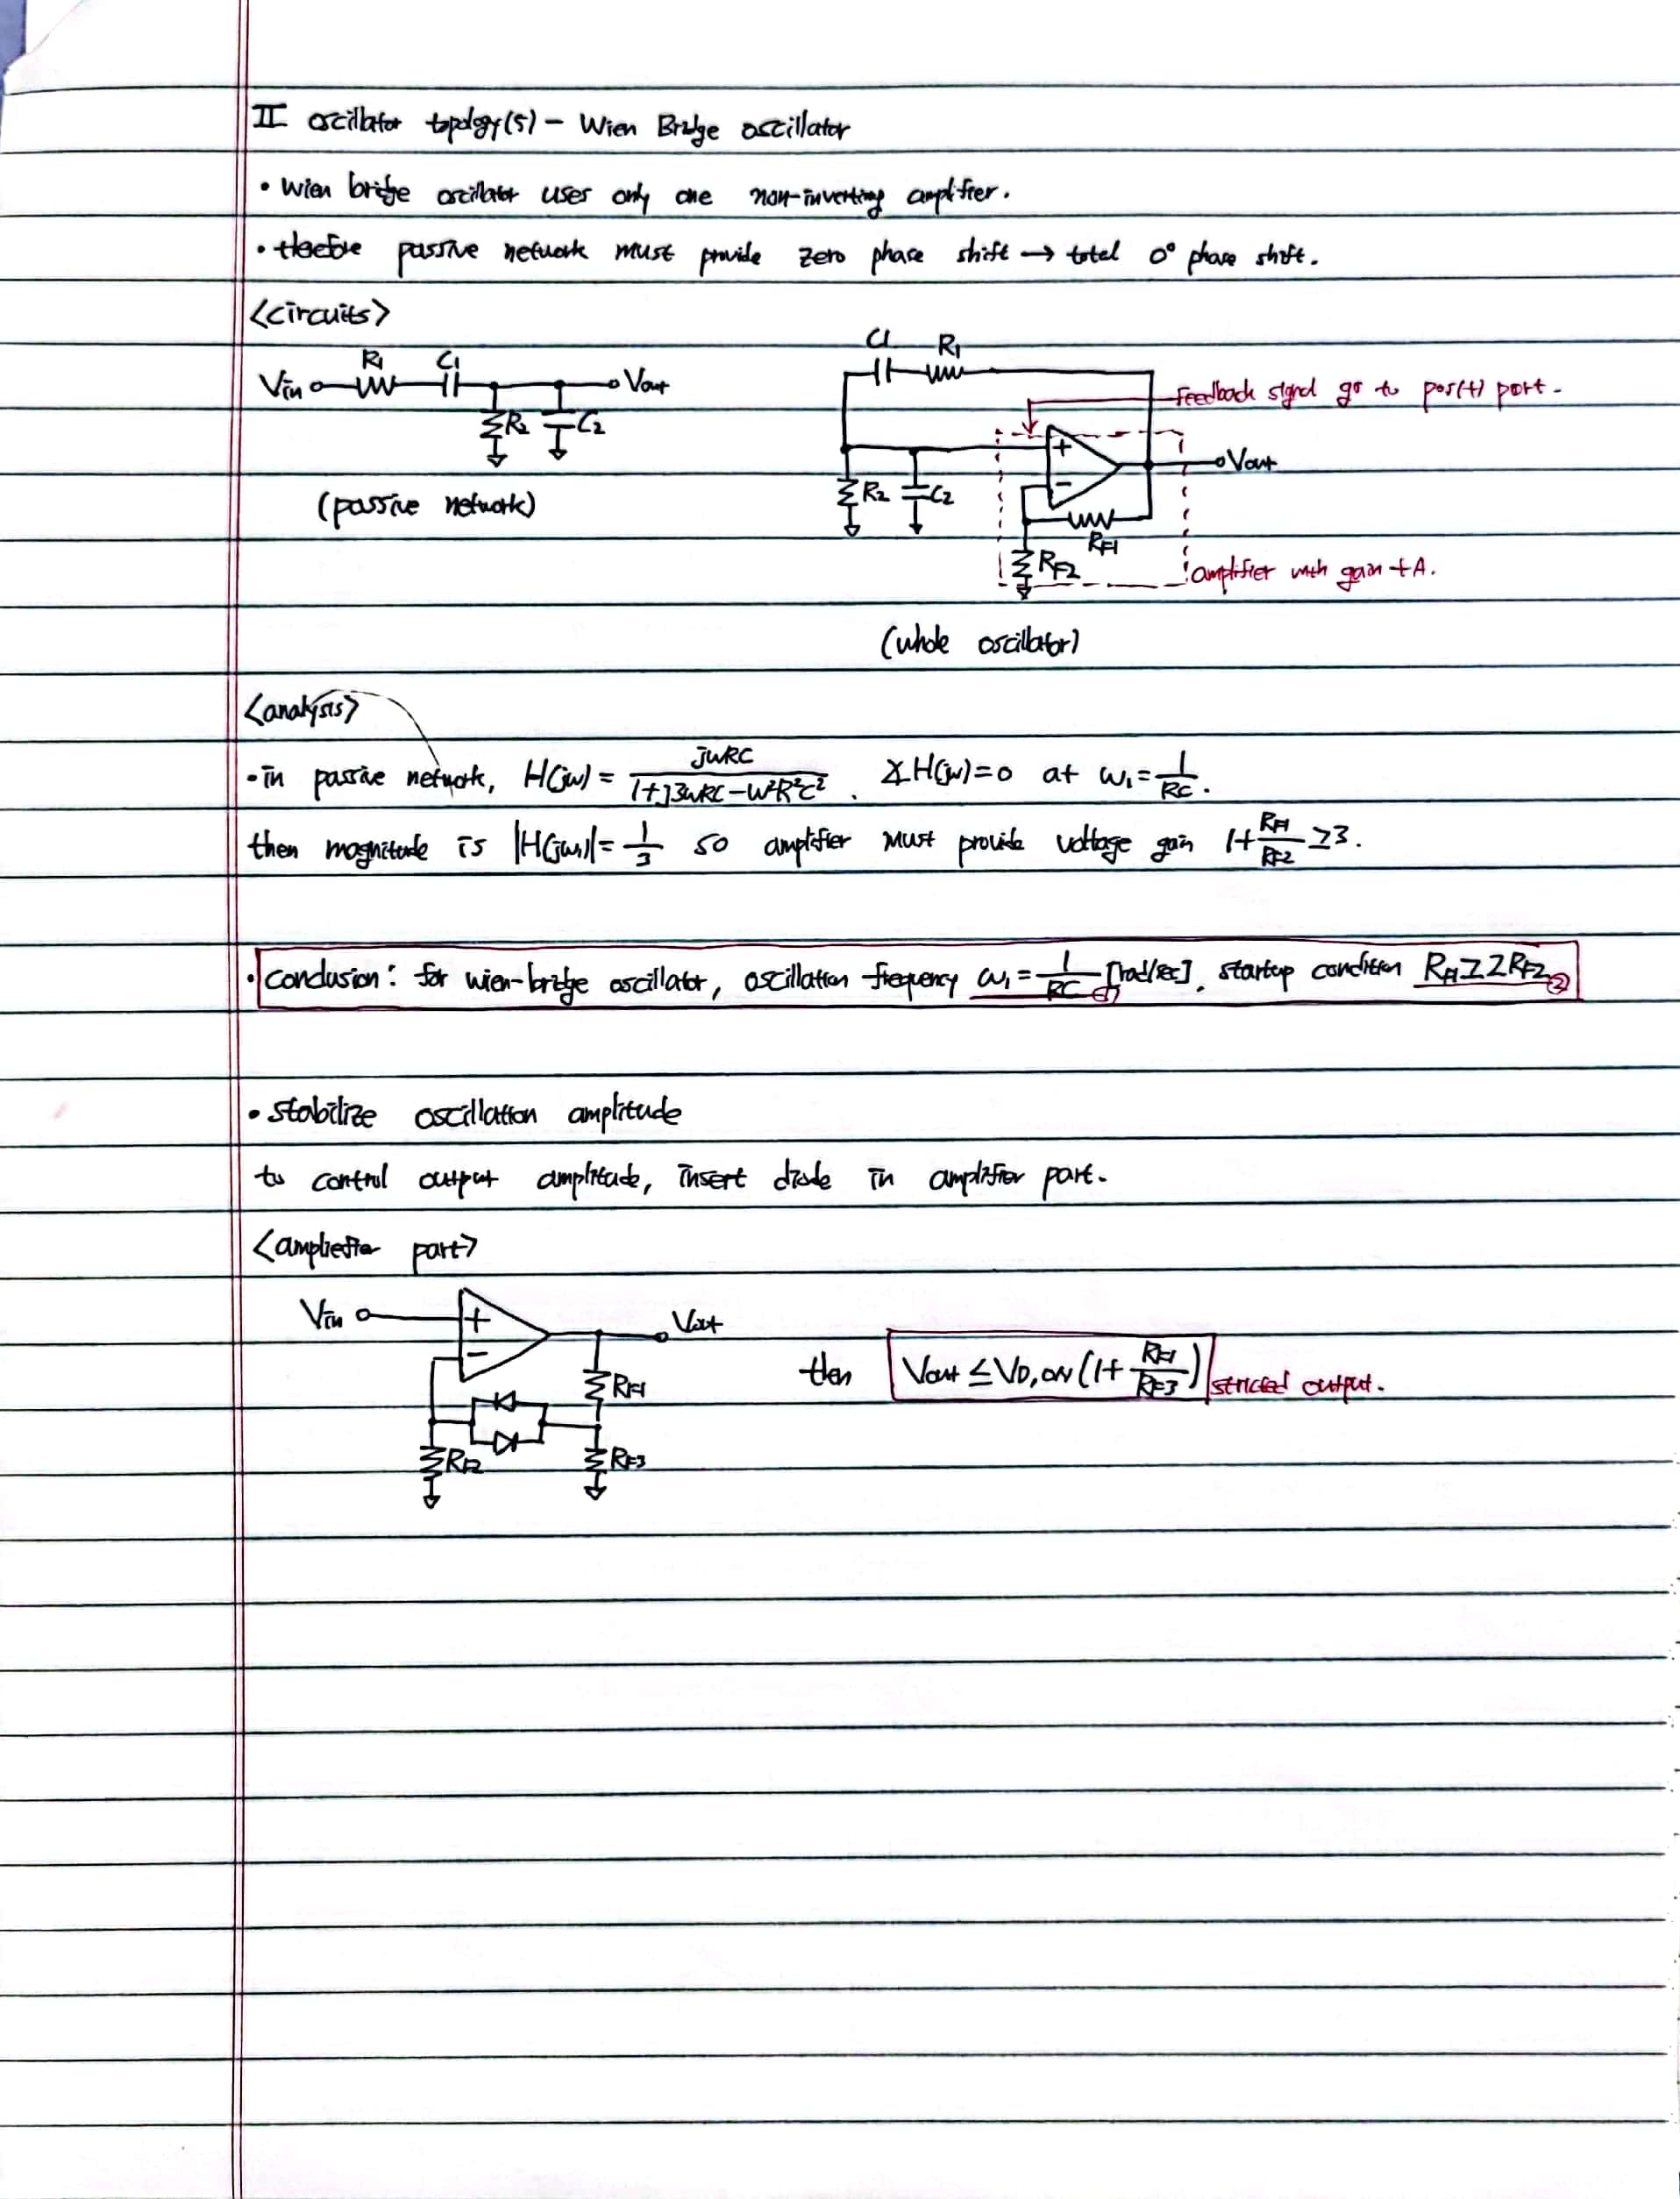 II oscillator topology(5) - Wien Bridge oscillator
• Wien bridge oscillator uses only one non-inverting amplifier.
• therefore passive network must provide zero phase shift → total 0° phase shift.
<circuits>
Vin R1 C1 Vout
R2 C2
(passive network)
C1 R1
feedback signal go to pos(+) port.
+ - Vout
R2 C2
RF1
RF2
amplifier with gain +A.
(whole oscillator)
<analysis>
• in passive network, H(jω) = jωRC / (1+j3ωRC-ω²R²C²) . ∡H(jω)=0 at ω1 = 1/RC .
then magnitude is |H(jω1)| = 1/3 so amplifier must provide voltage gain 1+ RF1/RF2 ≥3.
• conclusion: for wien-bridge oscillator, oscillation frequency ω1 = 1/RC ① [rad/sec], startup condition RF1≥2RF2 ②
• stabilize oscillation amplitude
to control output amplitude, insert diode in amplifier part.
<ampliefier part>
Vin + - Vout
RF1
RF2 RF3
then Vout ≤ VD,ON (1+ RF1/RF3) stricted output.